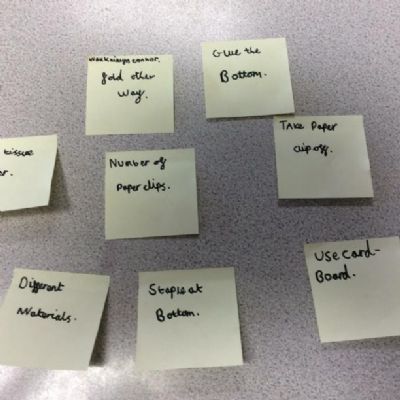 fold other
way.
Glue the
Bottom.
Take Paper
clip off.
tissue
Number of
Paper clips.
Different
Materials.
Staple at
Bottom.
Use card-
Board.